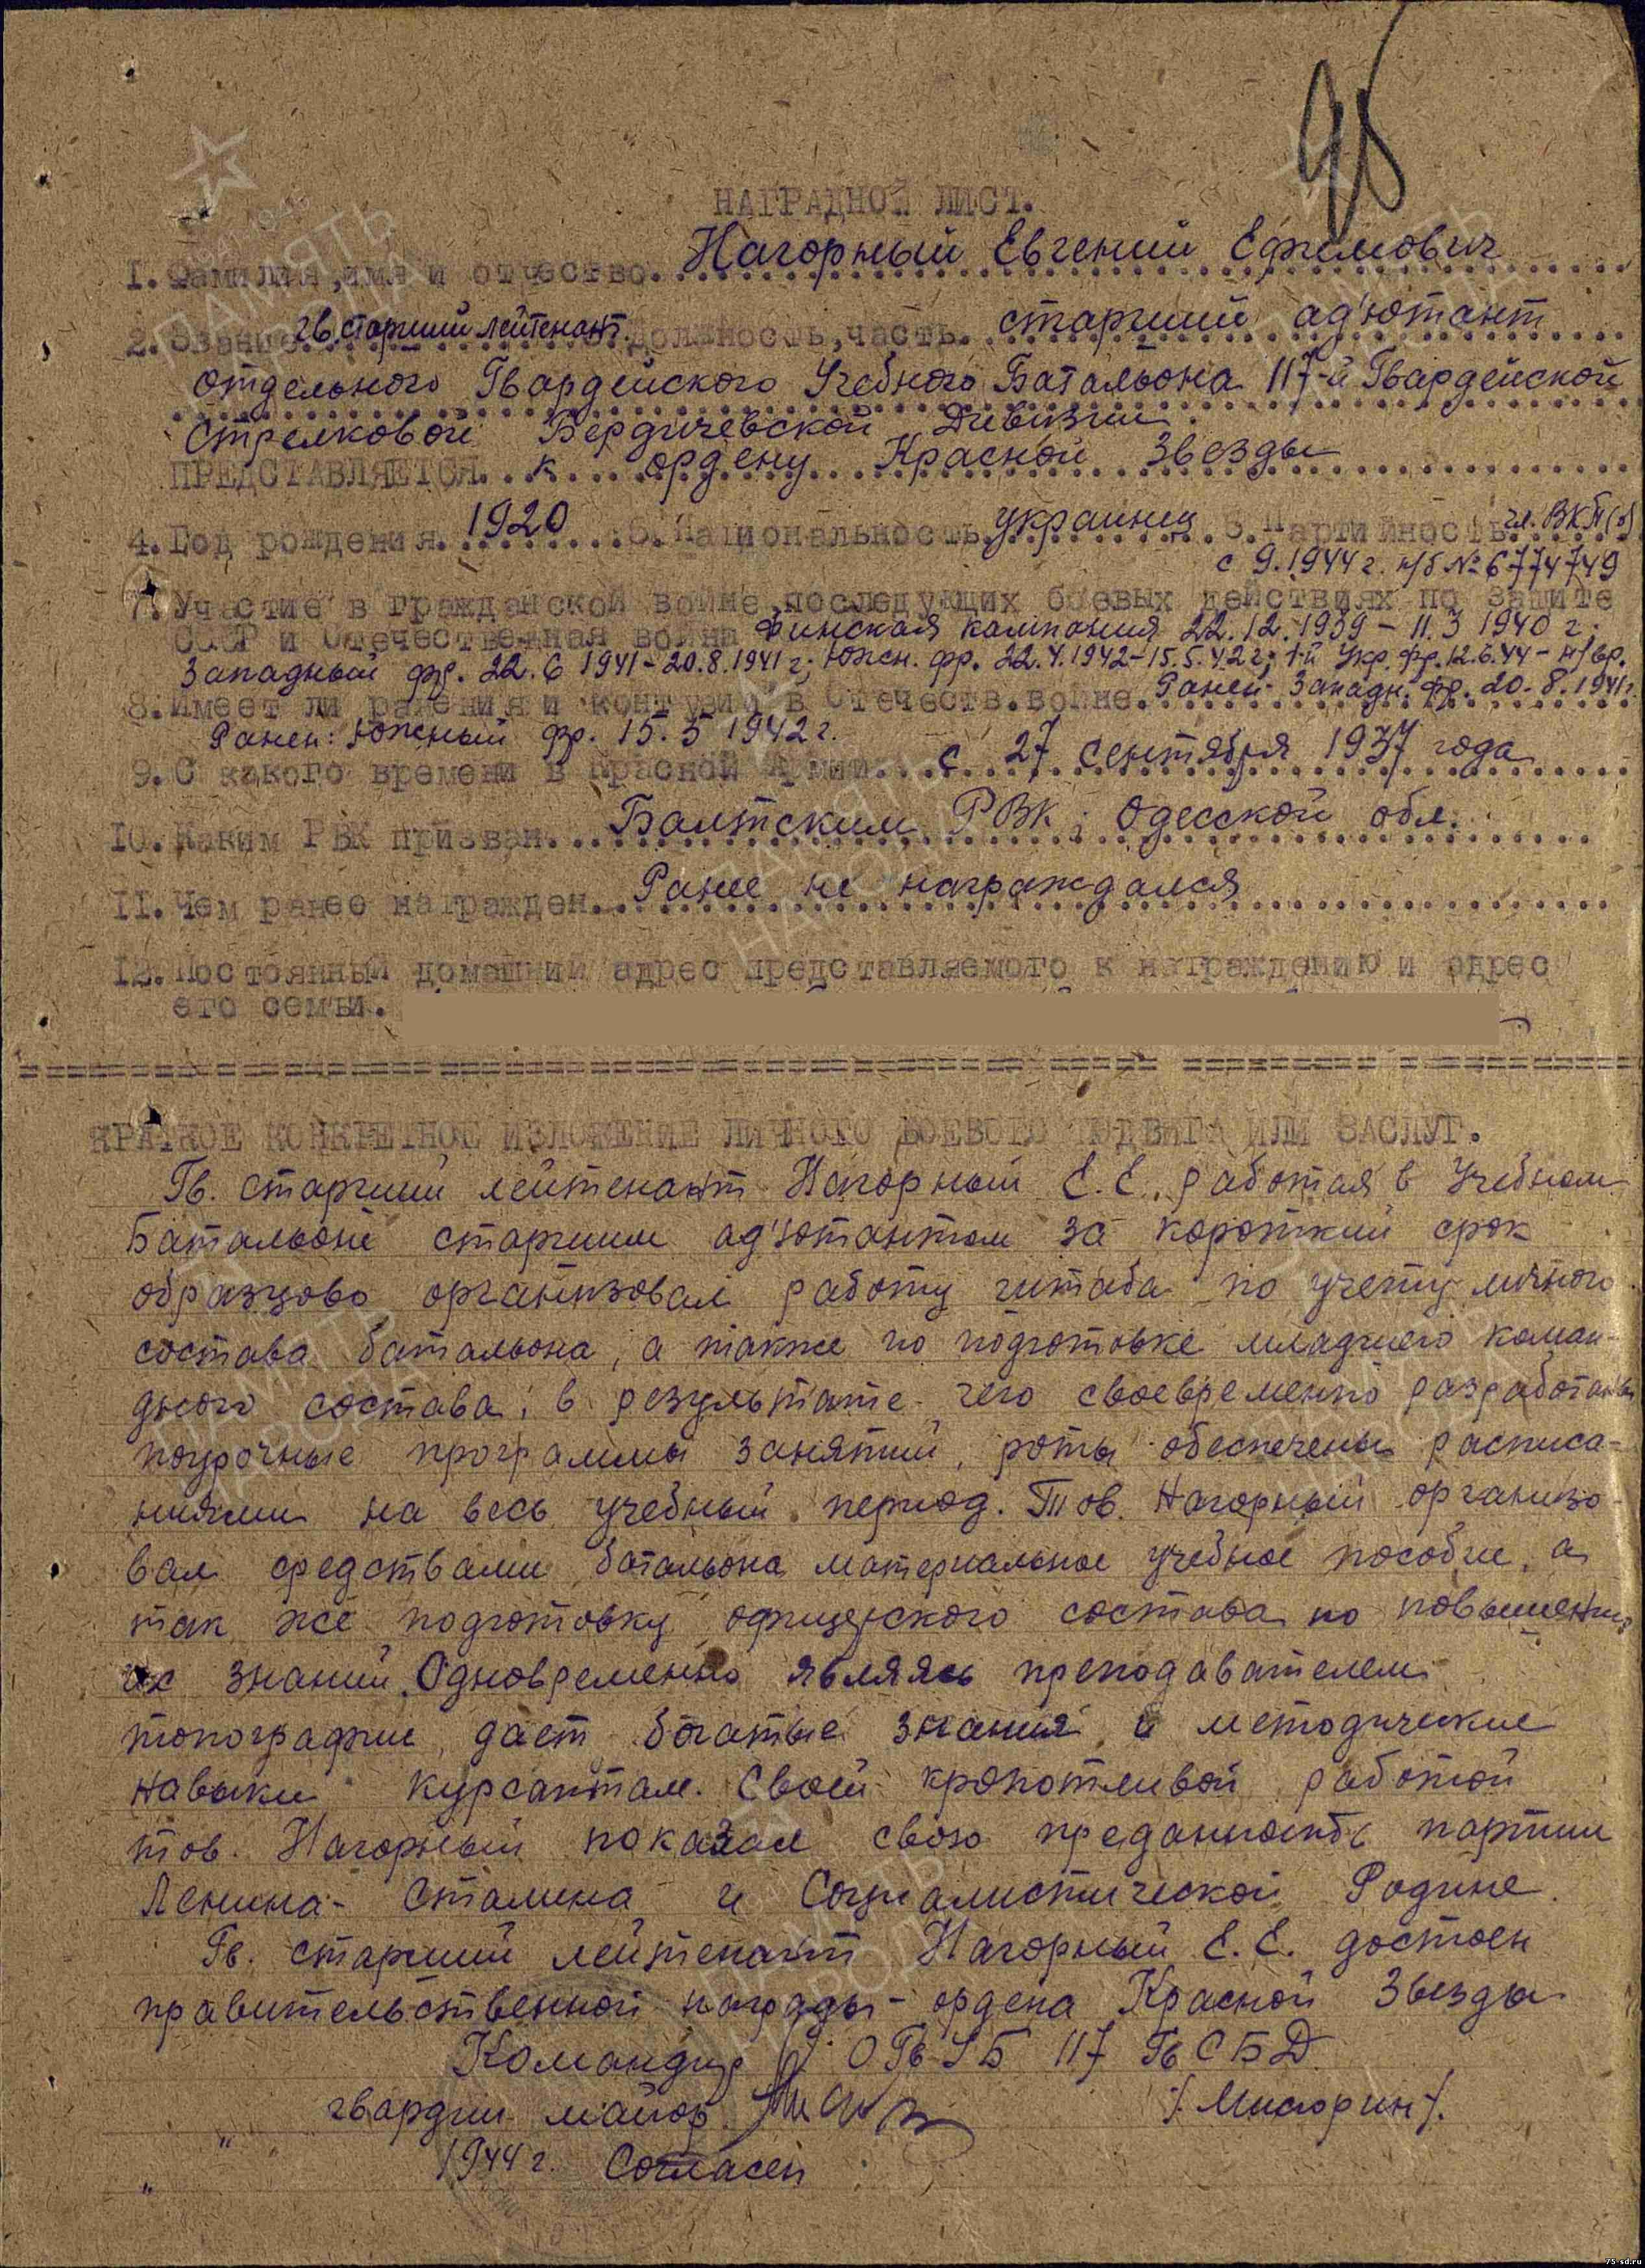 95
НАГРАДНОЙ ЛИСТ.
1. Фамилия, имя и отчество. Нагорный Евгений Ефимович
2. Звание гв. старший лейтенант. должность, часть. старший ад'ютант
отдельного Гвардейского Учебного Батальона 117-й Гвардейской
Стрелковой Бердичевской Дивизии.
ПРЕДСТАВЛЯЕТСЯ к ордену Красной Звезды
4. Год рождения. 1920 5. Национальность украинец 6. Партийность чл. ВКП(б)
с 9.1944 г. п/б № 6774749
7. Участие в гражданской войне, последующих боевых действиях по защите
СССР и Отечественная война Финская кампания 22.12.1939 - 11.3 1940 г;
Западный фр. 22.6 1941 - 20.8.1941 г; Южн. фр. 22.4.1942 - 15.5.42 г; 1-й Укр. фр. 12.6.44 - н/вр.
8. Имеет ли ранения и контузии в Отечеств. войне. Ранен Западн. фр. 20.8.1941 г.
Ранен: Южный фр. 15.5 1942 г.
9. С какого времени в Красной Армии. с 27 сентября 1937 года
10. Каким РВК призван. Балтским РВК, Одесской обл.
11. Чем ранее награжден. Ранее не награждался
12. Постоянный домашний адрес представляемого к награждению и адрес
его семьи.
КРАТКОЕ КОНКРЕТНОЕ ИЗЛОЖЕНИЕ ЛИЧНОГО БОЕВОГО ПОДВИГА ИЛИ ЗАСЛУГ.
Гв. старший лейтенант Нагорный Е.Е. работая в Учебном
Батальоне старшим ад'ютантом за короткий срок
образцово организовал работу штаба по учету личного
состава батальона, а также по подготовке младшего коман-
дного состава, в результате чего своевременно разработаны
поурочные программы занятий, роты обеспечены расписа-
ниями на весь учебный период. Тов. Нагорный организо-
вал средствами батальона материальное учебное пособие, а
так же подготовку офицерского состава по повышению
их знаний. Одновременно являясь преподавателем
топографии, дает богатые знания и методические
навыки курсантам. Своей кропотливой работой
тов. Нагорный показал свою преданность партии
Ленина - Сталина и Социалистической Родине.
Гв. старший лейтенант Нагорный Е.Е. достоен
правительственной награды - ордена Красной Звезды
Командир ОГвУБ 117 ГвСБД
гвардии майор /Мисюрин/.
" " 1944 г. Согласен
"
ПАМЯТЬ НАРОДА
75-sd.ru